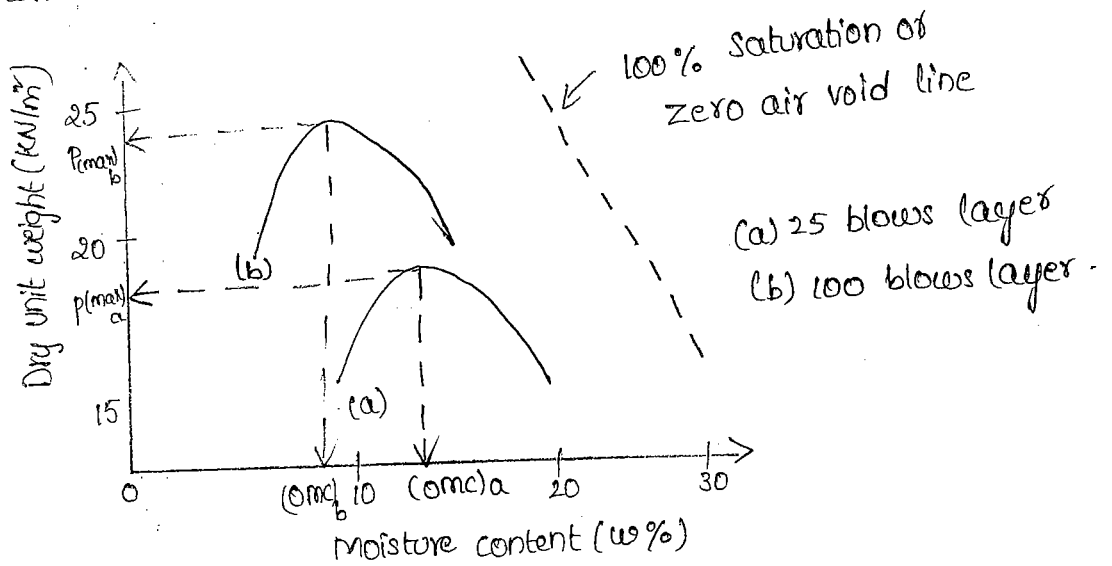 100% Saturation or
Zero air void line
(a) 25 blows layer
(b) 100 blows layer.
Dry unit weight (KN/m²)
25
P(max)b
20
P(max)a
15
(b)
(a)
0
(OMC)b
10
(OMC)a
20
30
Moisture content (w%)